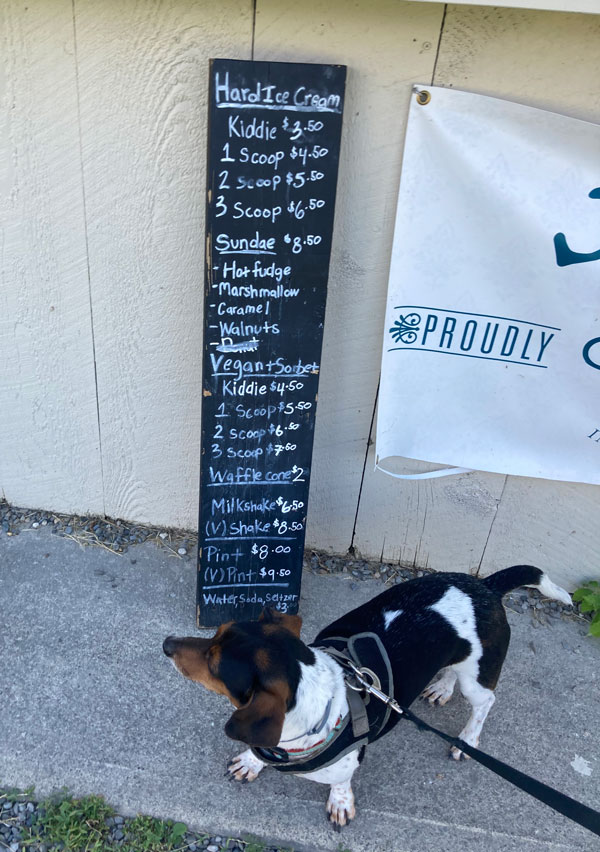 Hard Ice Cream
Kiddie $3.50
1 Scoop $4.50
2 Scoop $5.50
3 Scoop $6.50
Sundae $8.50
- Hot fudge
- Marshmallow
- Caramel
- Walnuts
Vegan + Sorbet
Kiddie $4.50
1 Scoop $5.50
2 Scoop $6.50
3 Scoop $7.50
Waffle cone $2
Milkshake $6.50
(V) Shake $8.50
Pint $8.00
(V) Pint $9.50
Water, Soda, Seltzer
$3.
PROUDLY